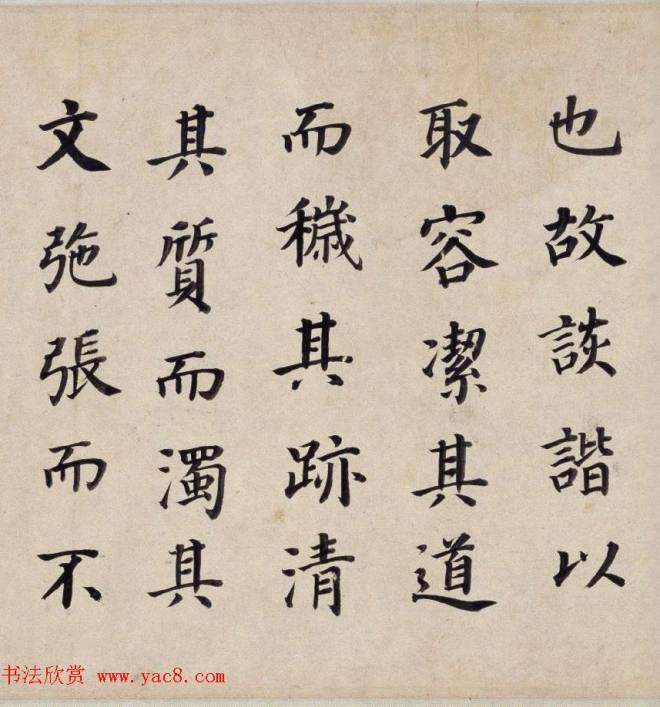 也故談諧以
取容潔其道
而穢其跡清
其質而濁其
文弛張而不
书法欣赏 www.yac8.com